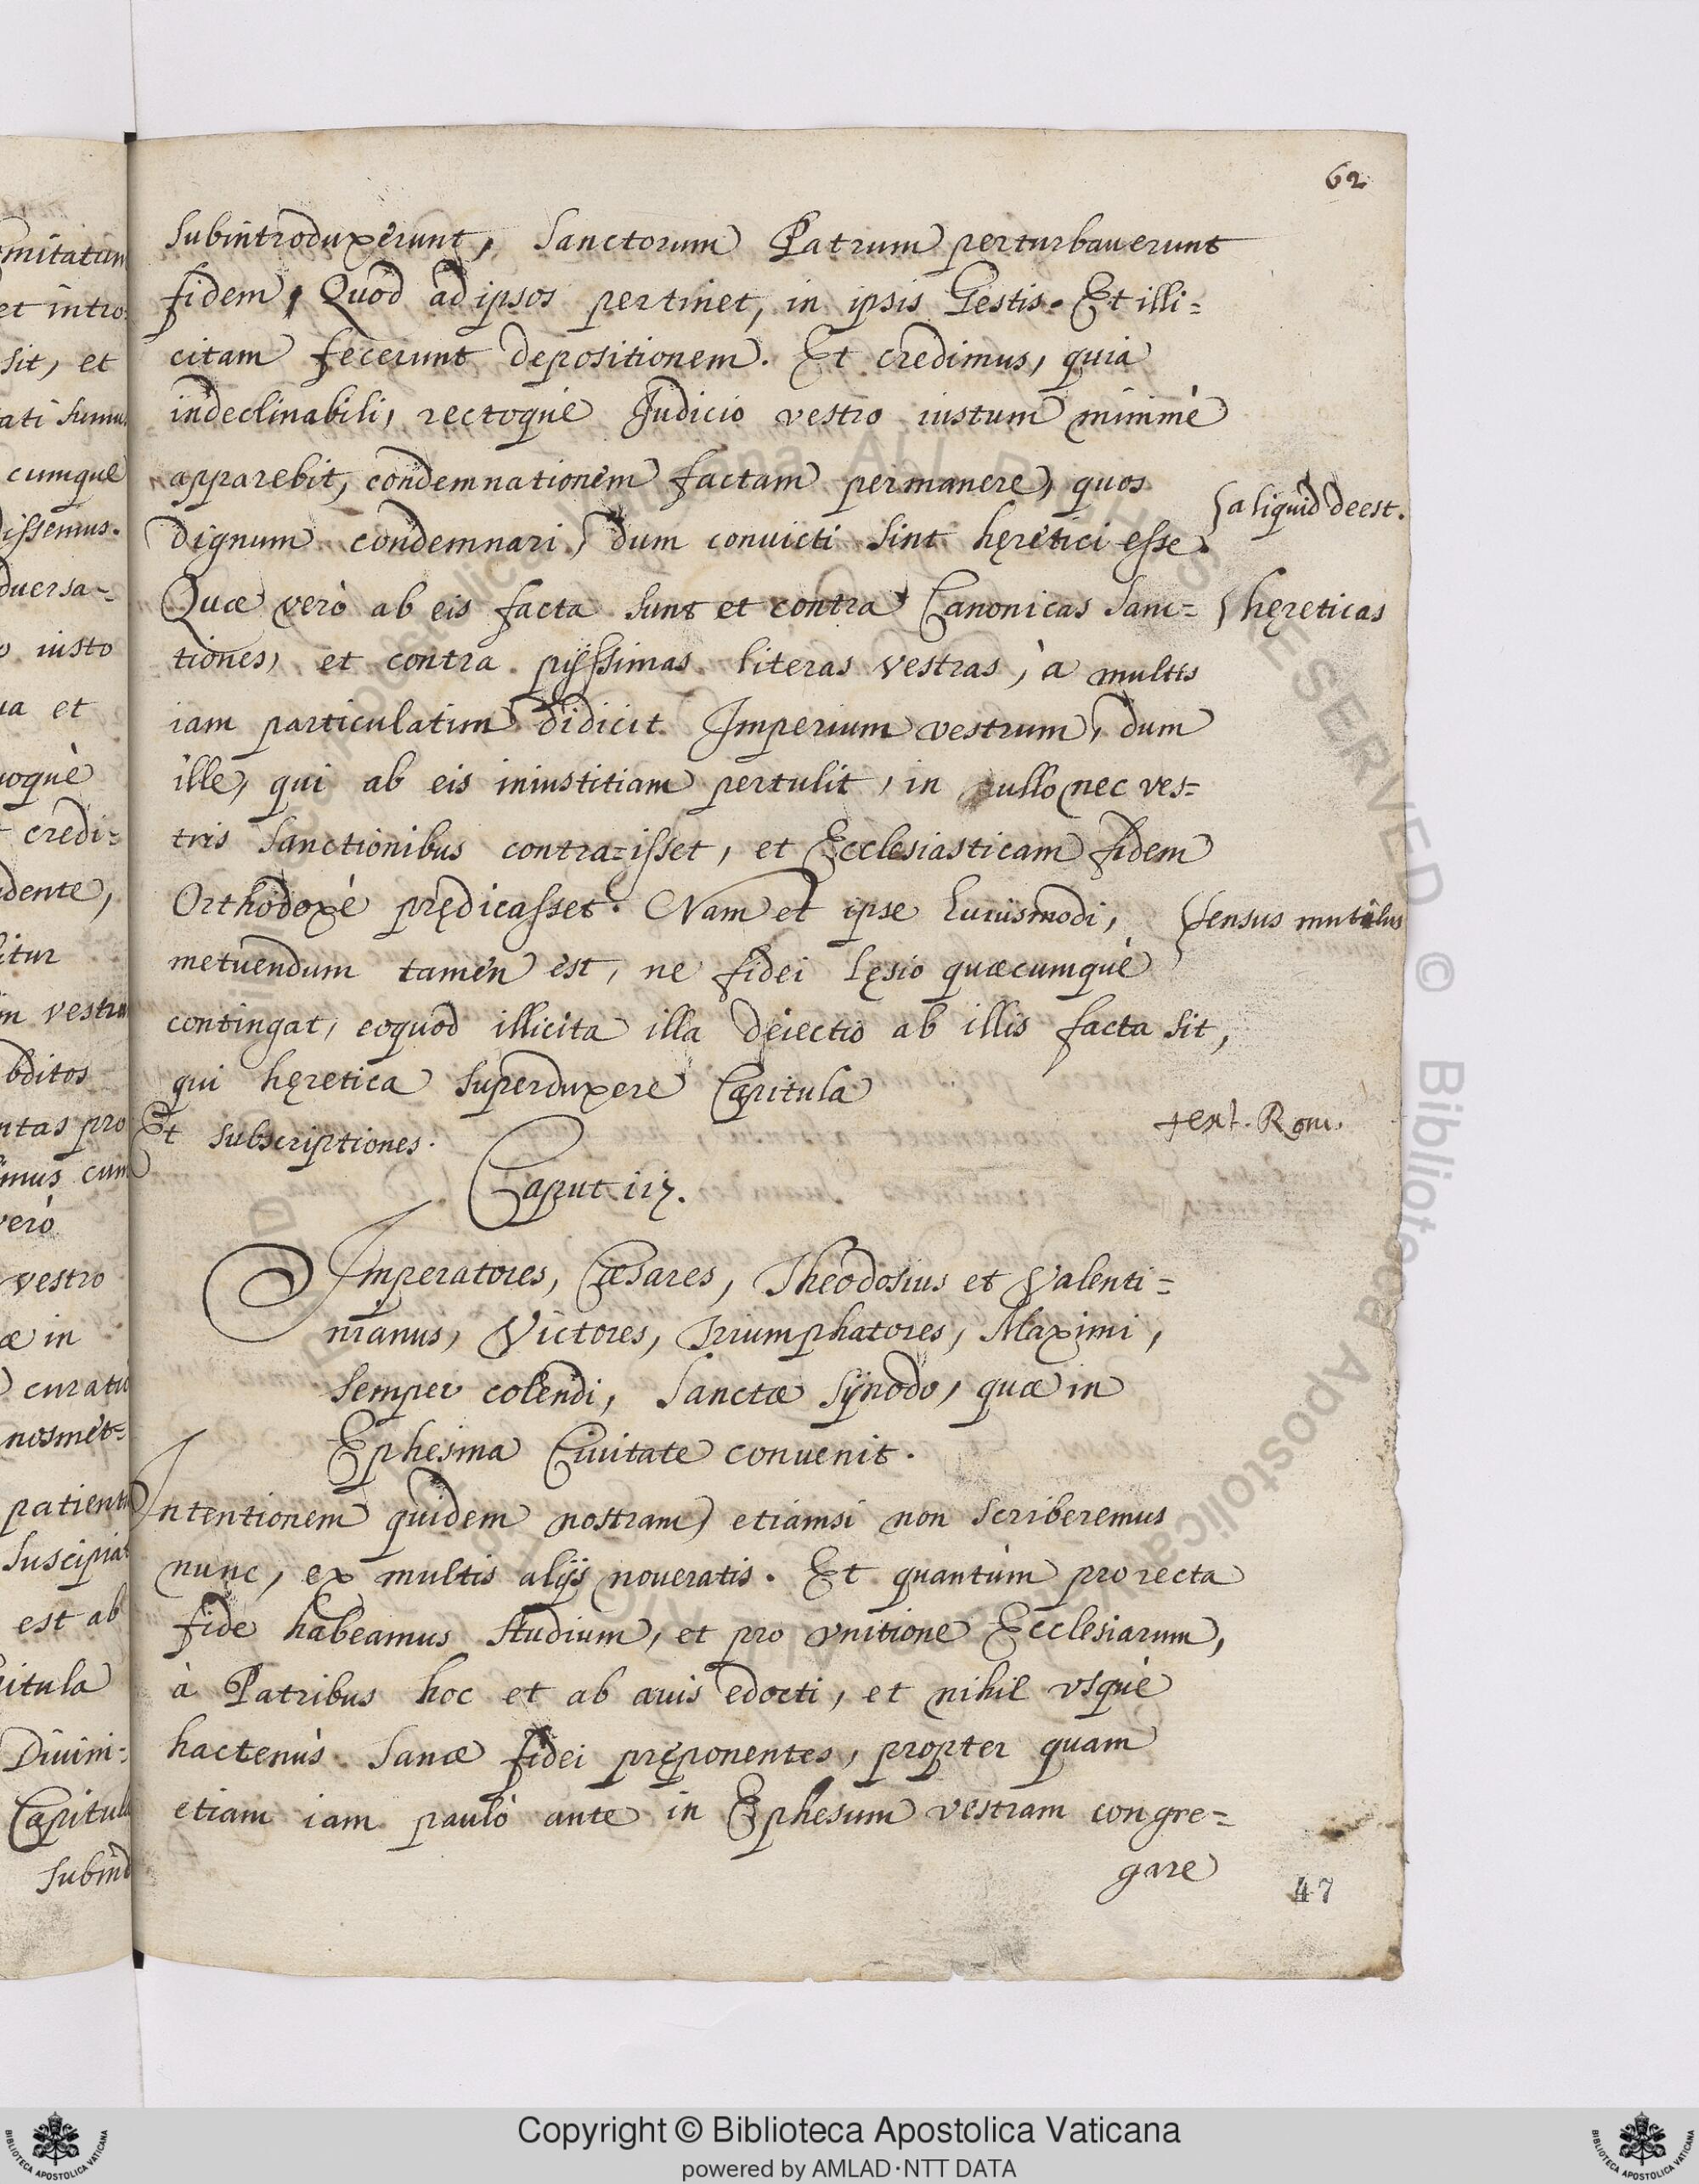 62
subintroduxerunt, Sanctorum Patrum perturbauerunt
fidem, Quod ad ipsos pertinet, in ipsis Gestis. Et illi=
citam fecerunt depositionem. Et credimus, quia
indeclinabili, rectoque Judicio vestro iustum minimè
apparebit, condemnationem factam permanere, quos
{aliquid deest.
dignum condemnari, dum conuicti sint hęretici esse.
Quæ verò ab eis facta sunt et contra Canonicas Sanc=
{hęreticas
tiones, et contra pijssimas literas vestras, à multis
iam particulatim didicit Imperium vestrum, dum
ille, qui ab eis iniustitiam pertulit, in nullo nec ves=
tris Sanctionibus contra=isset, et Ecclesiasticam fidem
Orthodoxè prędicasset. Nam et ipse huiusmodi,
{sensus mutilus
metuendum tamen est, ne fidei lęsio quæcumquè
contingat, eoquod illicita illa deiectio ab illis facta sit,
qui hęretica superduxere Capitula
Et subscriptiones.
text. Rom.
Caput iij.
Imperatores, Cæsares, Theodosius et Valenti=
nianus, Victores, Triumphatores, Maximi,
semper colendi, Sanctæ Sÿnodo, quæ in
Ephesina Ciuitate conuenit.
Intentionem quidem nostram, etiamsi non scriberemus
nunc, ex multis alijs noueratis. Et quantùm pro recta
fide habeamus studium, et pro vnitione Ecclesiarum,
à Patribus hoc et ab auis edocti, et nihil vsquè
hactenùs sanæ fidei pręponentes, propter quam
etiam iam paulò ante in Ephesum vestram congre=
gare
47
Copyright © Biblioteca Apostolica Vaticana
powered by AMLAD·NTT DATA